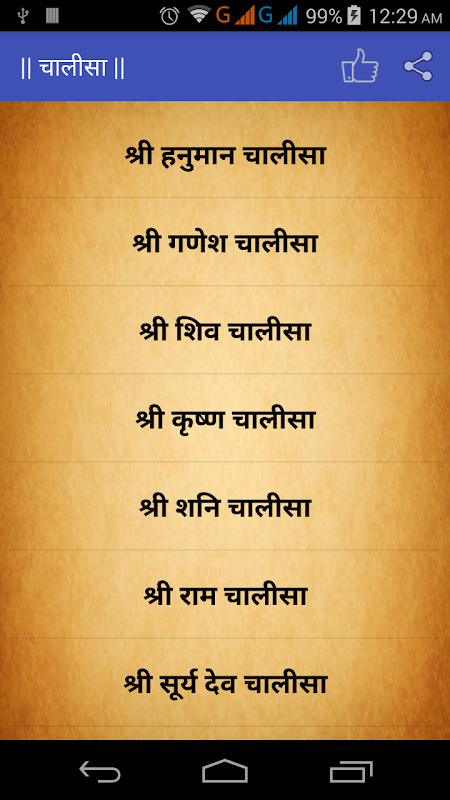 G G 99% 12:29 AM
|| चालीसा ||
श्री हनुमान चालीसा
श्री गणेश चालीसा
श्री शिव चालीसा
श्री कृष्ण चालीसा
श्री शनि चालीसा
श्री राम चालीसा
श्री सूर्य देव चालीसा